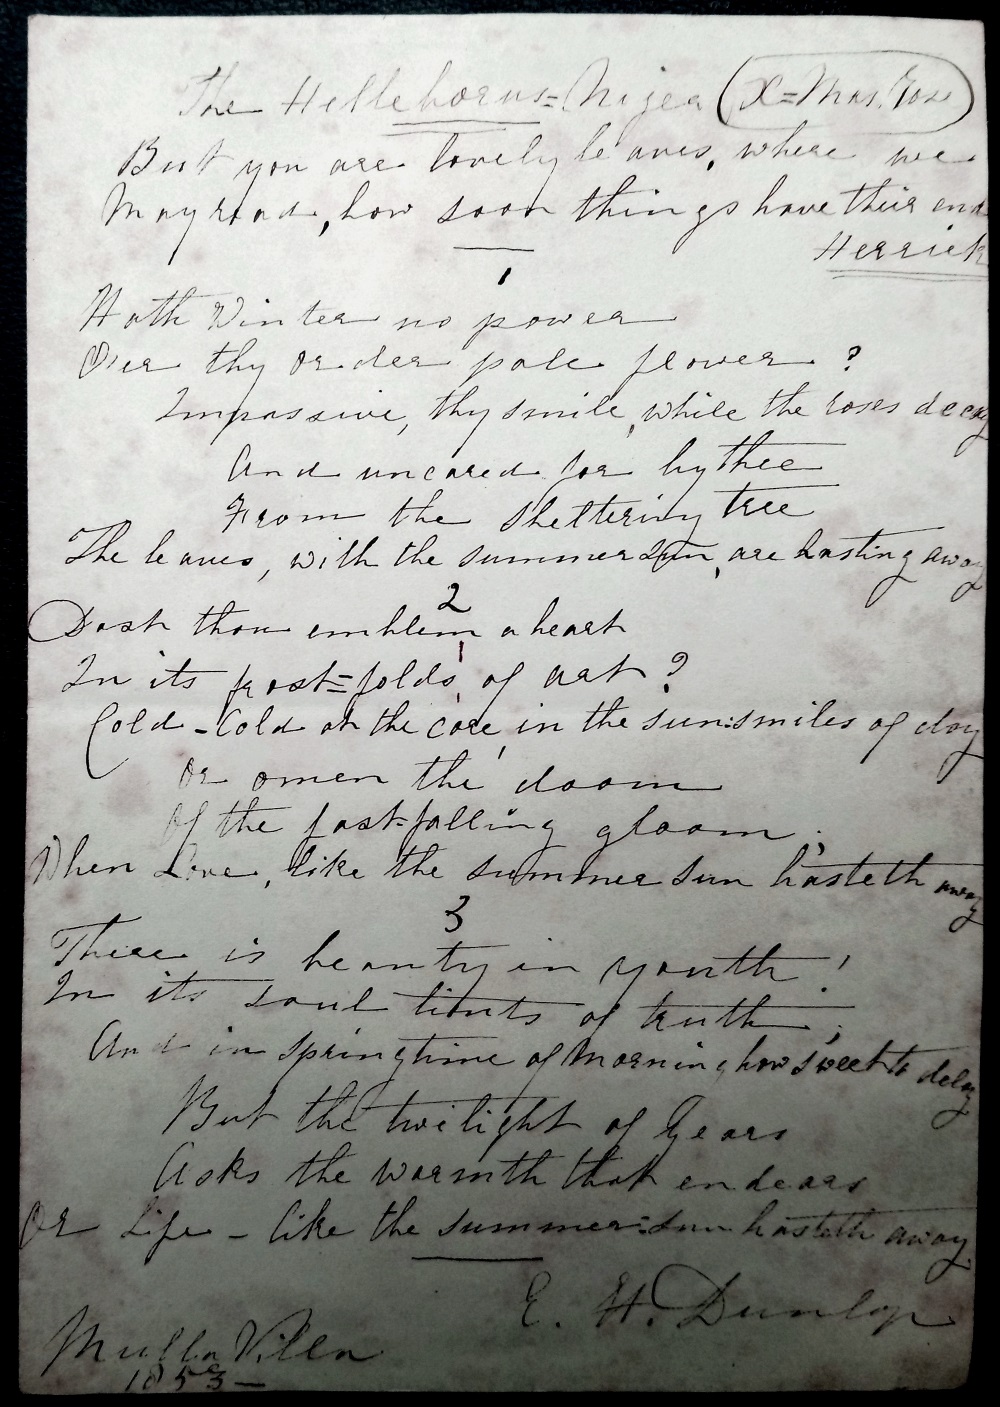 The Helleborus=Niger (X=Mas. Rose)
But you are lovely leaves, where we
May read, how soon things have their end
Herrick
1
Hath Winter no power
O'er thy order pale flower?
Impassive, thy smile, while the roses decay
And uncared for by thee
From the sheltering tree
The leaves, with the summer sun, are hasting away
2
Dost thou emblem a heart
In its frost=folds, of art?
Cold - Cold at the core, in the sun:smiles of day
Or omen the doom
Of the fast-falling gloom,
When Love, like the summer sun hasteth away
3
There is beauty in youth!
In its soul tints of truth;
And in springtime of Morning how sweet to delay
But the twilight of Years
Asks the warmth that endears
Or Life - like the summer:sun hasteth away.
E. H. Dunlop
Mulla Villa
1853 -